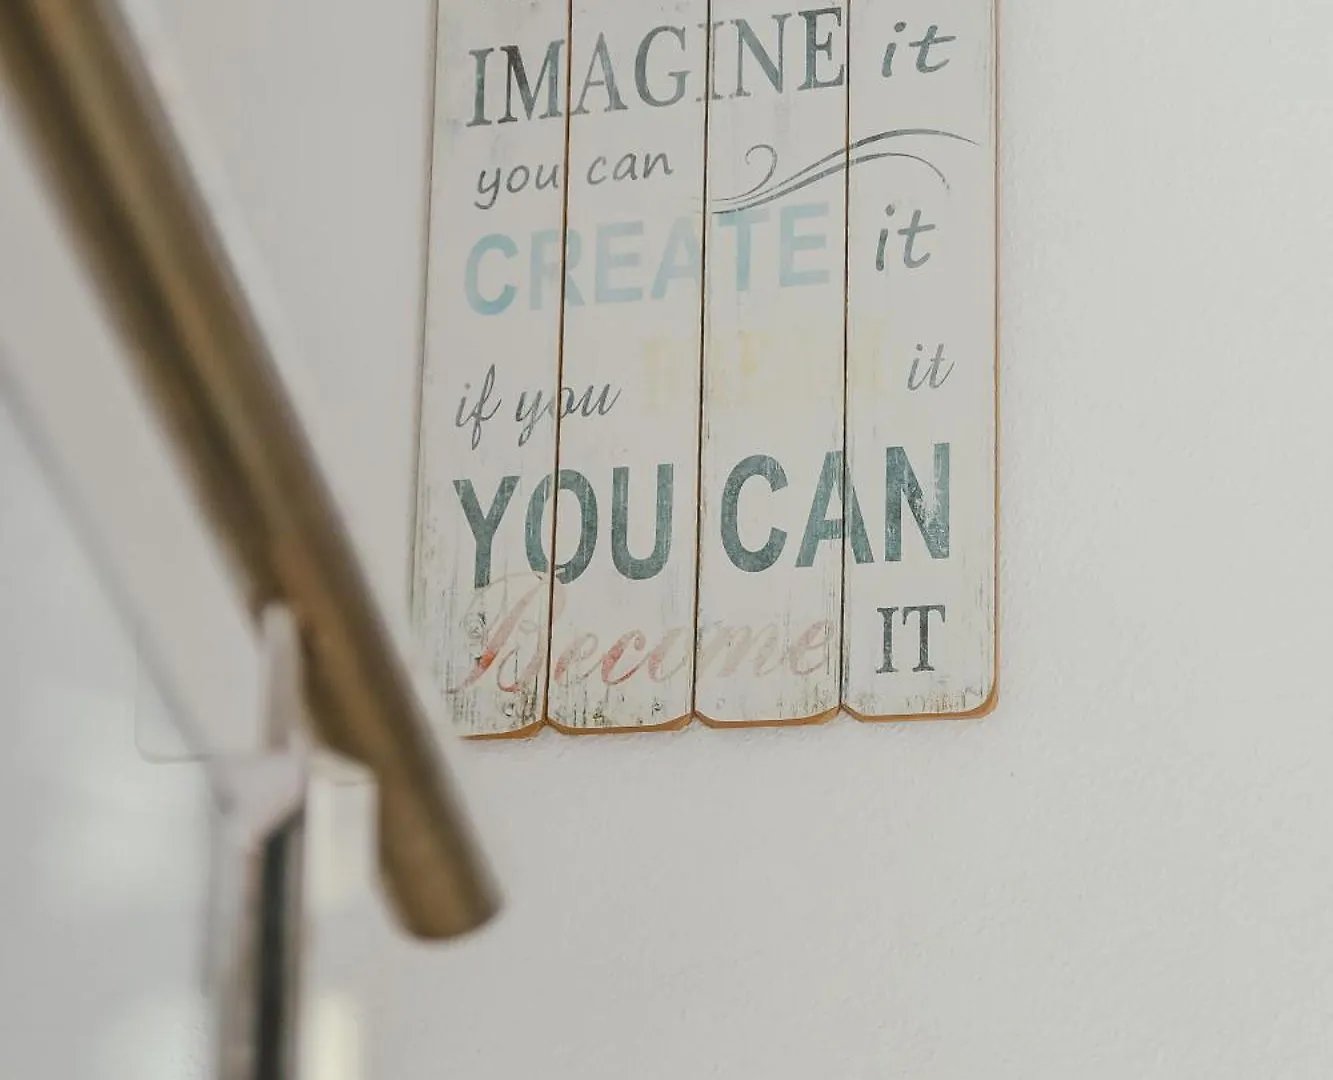 IMAGINE it
you can
CREATE it
if you DREAM it
YOU CAN
Become IT